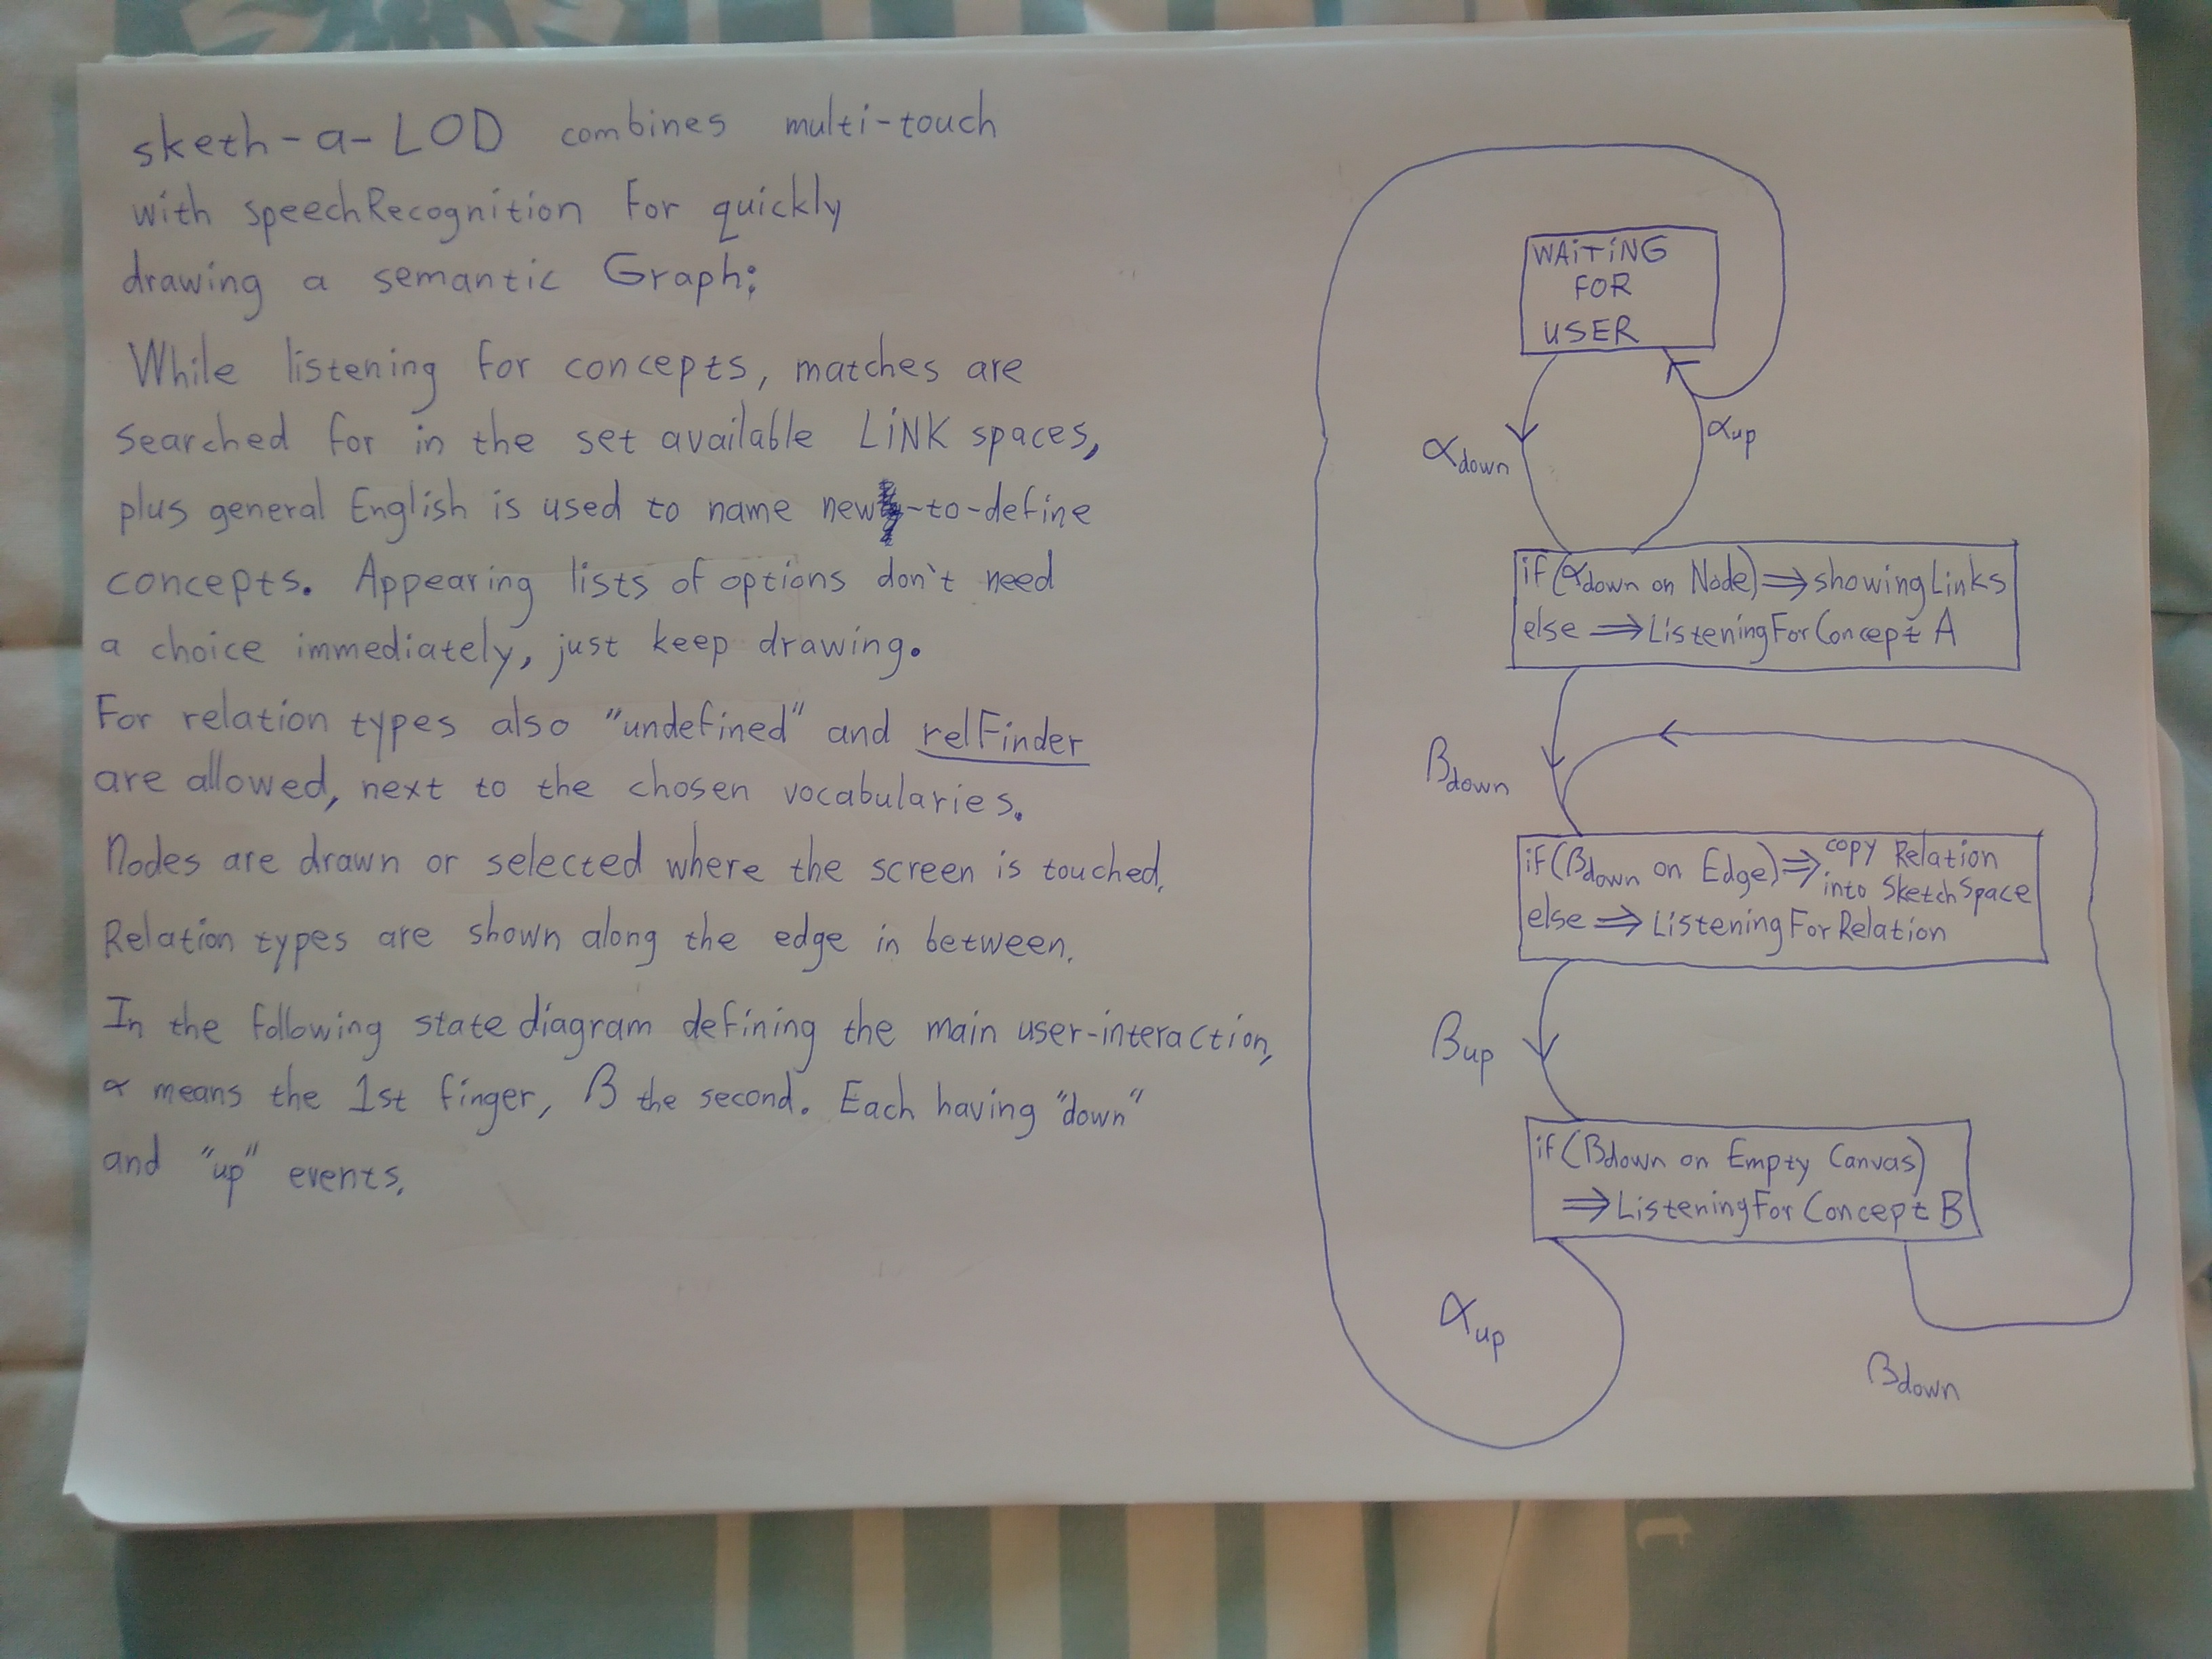 sketh-a-LOD combines multi-touch
with speechRecognition for quickly
drawing a semantic Graph:
While listening for concepts, matches are
searched for in the set available LiNK spaces,
plus general English is used to name new-to-define
concepts. Appearing lists of options don't need
a choice immediately, just keep drawing.
For relation types also "undefined" and relFinder
are allowed, next to the chosen vocabularies.
Nodes are drawn or selected where the screen is touched.
Relation types are shown along the edge in between.
In the following state diagram defining the main user-interaction,
α means the 1st finger, β the second. Each having "down"
and "up" events.
WAiTiNG
FOR
USER
αdown
αup
if(αdown on Node)⇒showingLinks
else ⇒ListeningForConcept A
βdown
if(βdown on Edge)⇒copy Relation
into SketchSpace
else ⇒ListeningForRelation
βup
if(βdown on Empty Canvas)
⇒ListeningForConcept B
αup
βdown